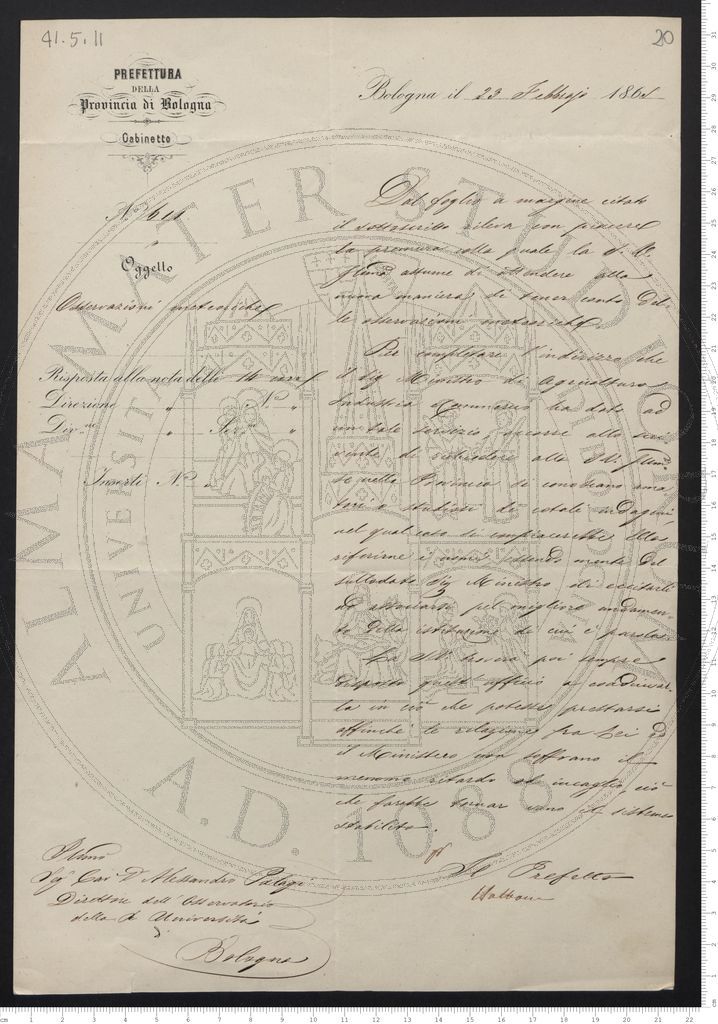 41.5.11
20
PREFETTURA
DELLA
Provincia di Bologna
Gabinetto
Bologna il 23 Febbrajo 186
N.
Oggetto
Osservazioni meteoriche
Risposta alla nota delli 14 corr
Direzione " N.° "
Div.ne " Sez.ne "
Inserti N.° "
Dal foglio a margine citato
il sottoscritto rileva con piacere
la premura colla quale la S. V.
Illma assume di attendere alla
nuova maniera di tener conto del-
le osservazioni meteoriche.
Per completare l'indirizzo che
il Sig Ministro di Agricoltura
Industria e Commercio ha dato ad
un tale servizio, occorre allo scri-
vente di richiedere alla S.V. Illma
se nella Provincia si conoscano
o studiosi di cotali indagini
nel qual caso si compiacerebbe
riferirne i nomi essendo mente del
sullodato Sig Ministro di eccitarli
ad associarsi pel migliore andamen-
to della istituzione di cui è parola.
La S.V. troverà poi sempre
disposto quest'ufficio a coadiuvar-
la in ciò che potesse prestarsi
affinchè le relazioni fra Lei ed
il Ministero non soffrano il
menomo ritardo od incaglio, ciò
che farebbe tornar vano il sistema
stabilito.
Il Prefetto
Illmo
Sig Cav D Alessandro Palagi
Direttore dell'Osservatorio
della R Università
di
Bologna
ALMA MATER STUDIORUM
UNIVERSITA DI BOLOGNA
A.D. 1088